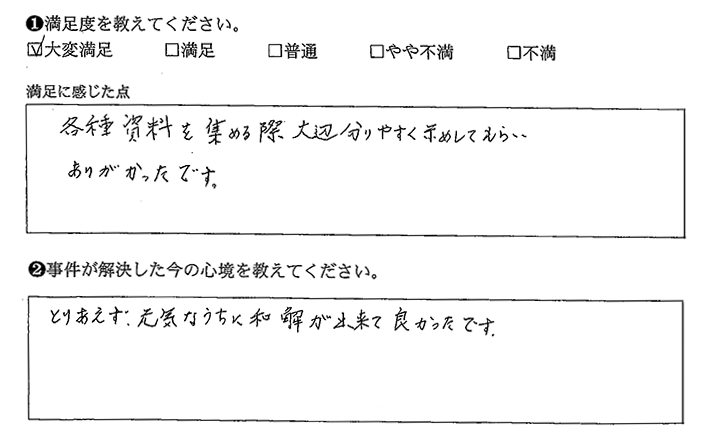 ❶満足度を教えてください。
☑大変満足 □満足 □普通 □やや不満 □不満
満足に感じた点
各種資料を集める際大辺分りやすく示めしてもらい
ありがかったです。
❷事件が解決した今の心境を教えてください。
とりあえず、元気なうちに和解が出来て良かったです。